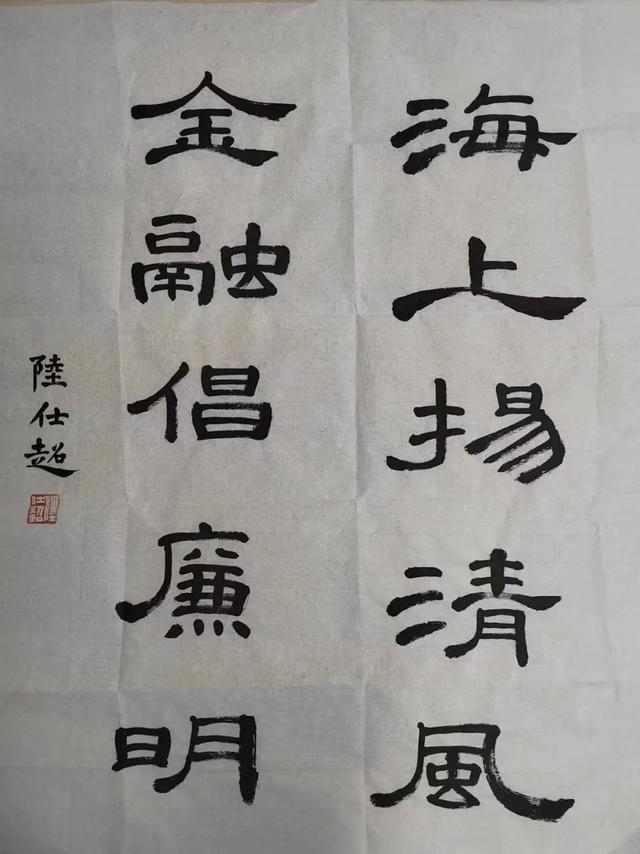 海上揚清風
金融倡廉明
陸仕超